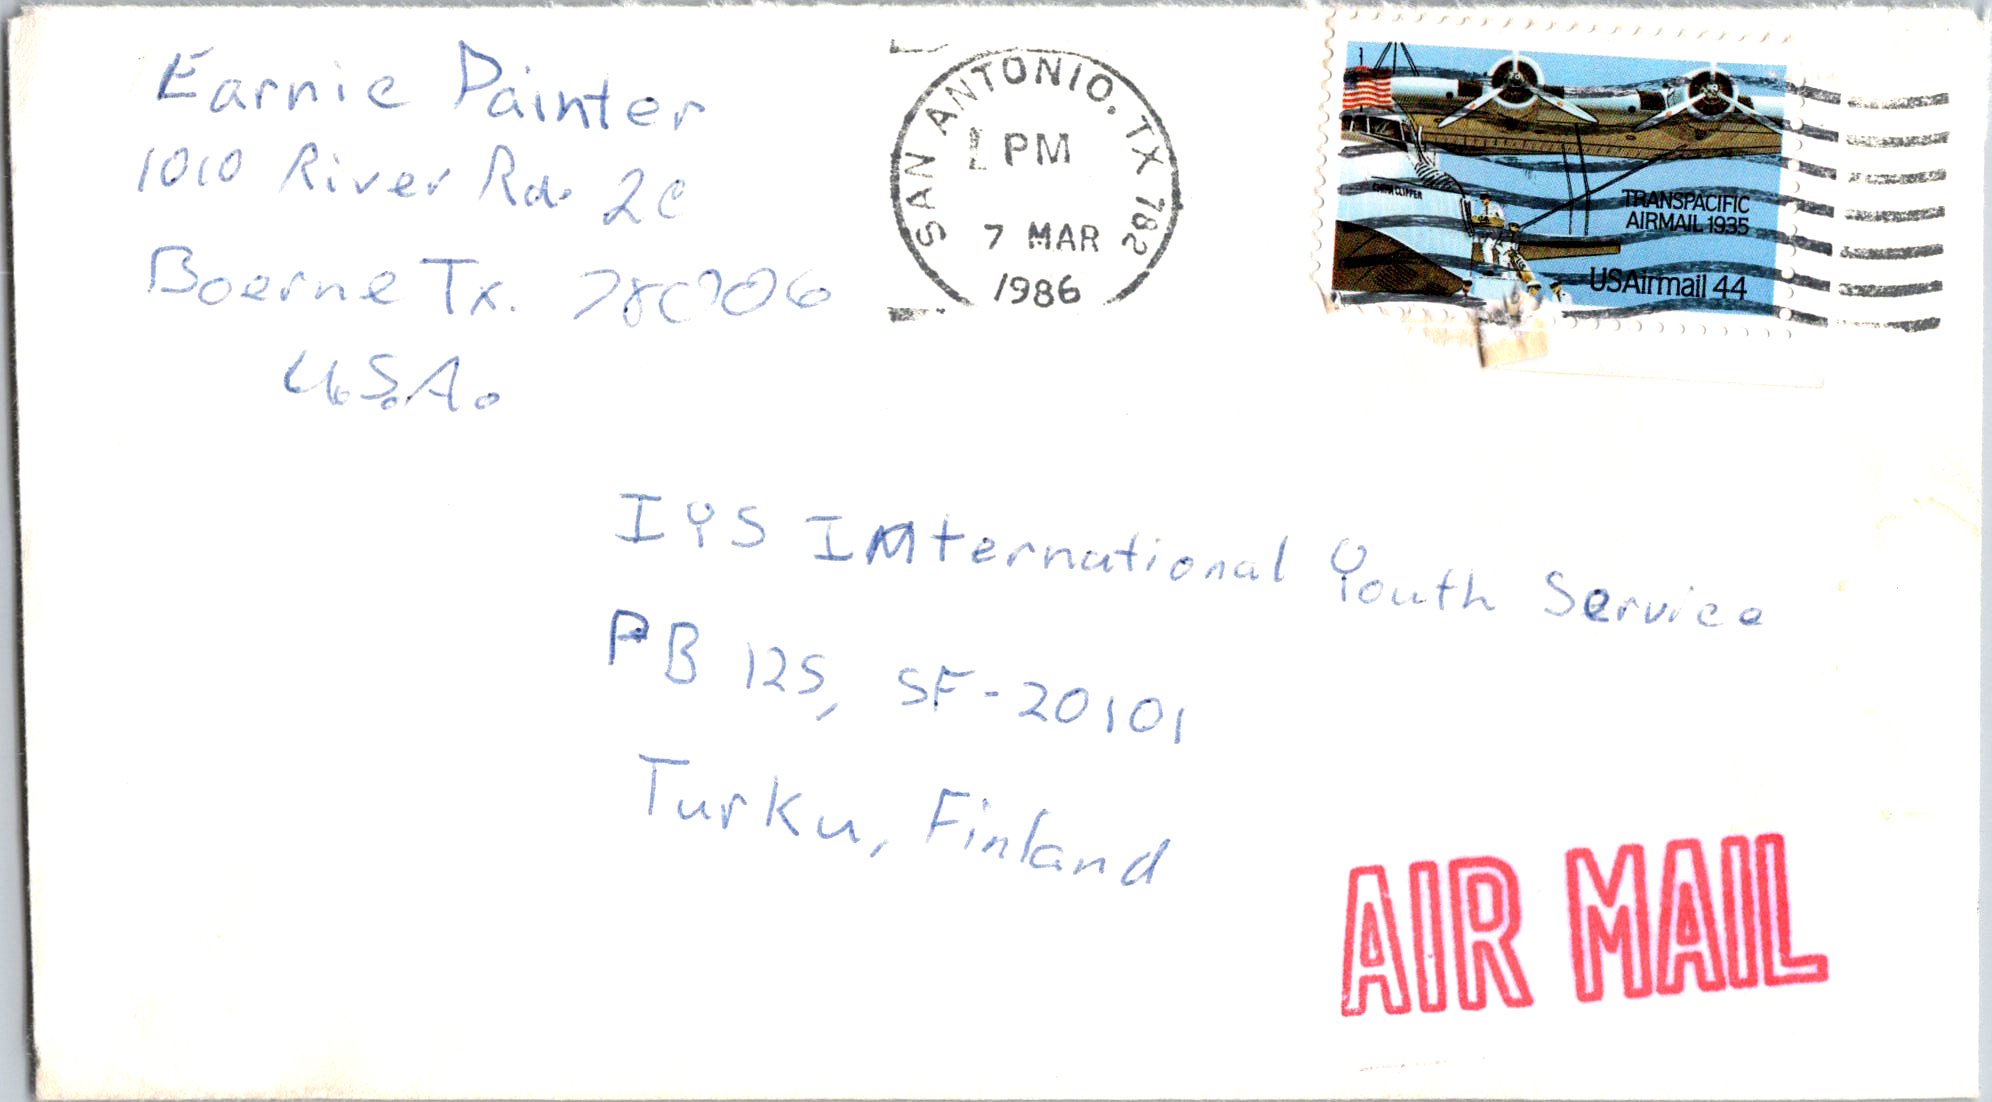 Earnie Painter
1010 River Rd. 2C
Boerne Tx. 78006
U.S.A.
SAN ANTONIO, TX 782
PM
7 MAR
1986
CHINA CLIPPER
TRANSPACIFIC
AIRMAIL 1935
USAirmail 44
IYS IMternational Youth Service
PB 125, SF-20101
Turku, Finland
AIR MAIL